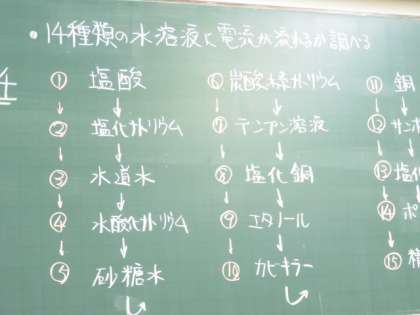 ・14種類の水溶液に電流が流れるか調べる
① 塩酸
② 塩化ナトリウム
③ 水道水
④ 水酸化ナトリウム
⑤ 砂糖水
⑥ 炭酸水素ナトリウム
⑦ デンプン溶液
⑧ 塩化銅
⑨ エタノール
⑩ カビキラー
⑪ 銅
⑫ サンポ
⑬ 塩化
⑭ ポ
⑮ 精